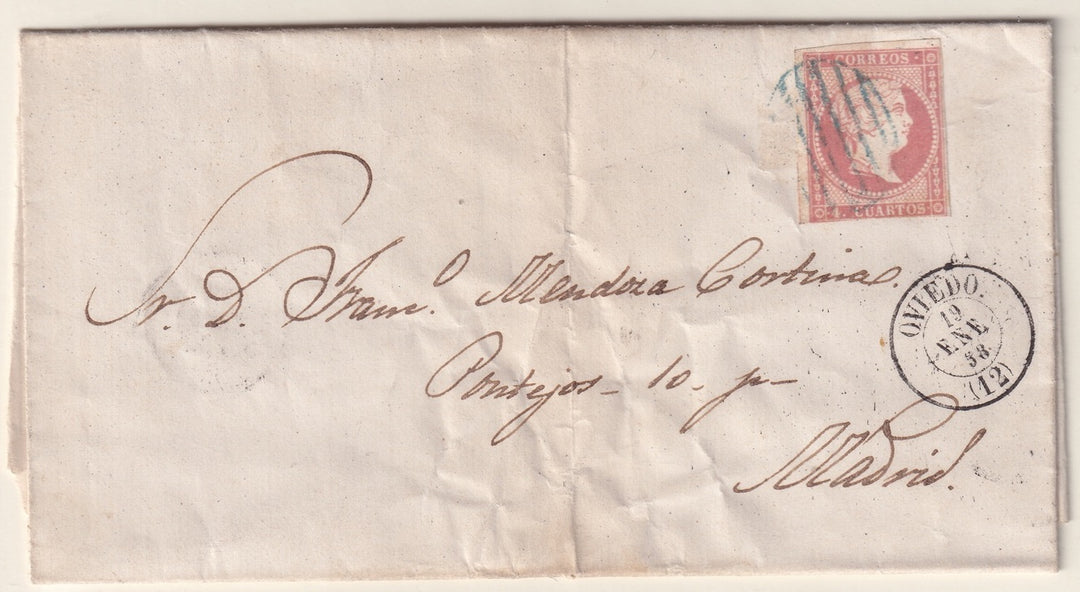 CORREOS
4. CUARTOS
Sr. D. Franco. Mendoza Cortina.
Pontejos - 10 - p-
Madrid.
OVIEDO.
19
ENE
58
(12)